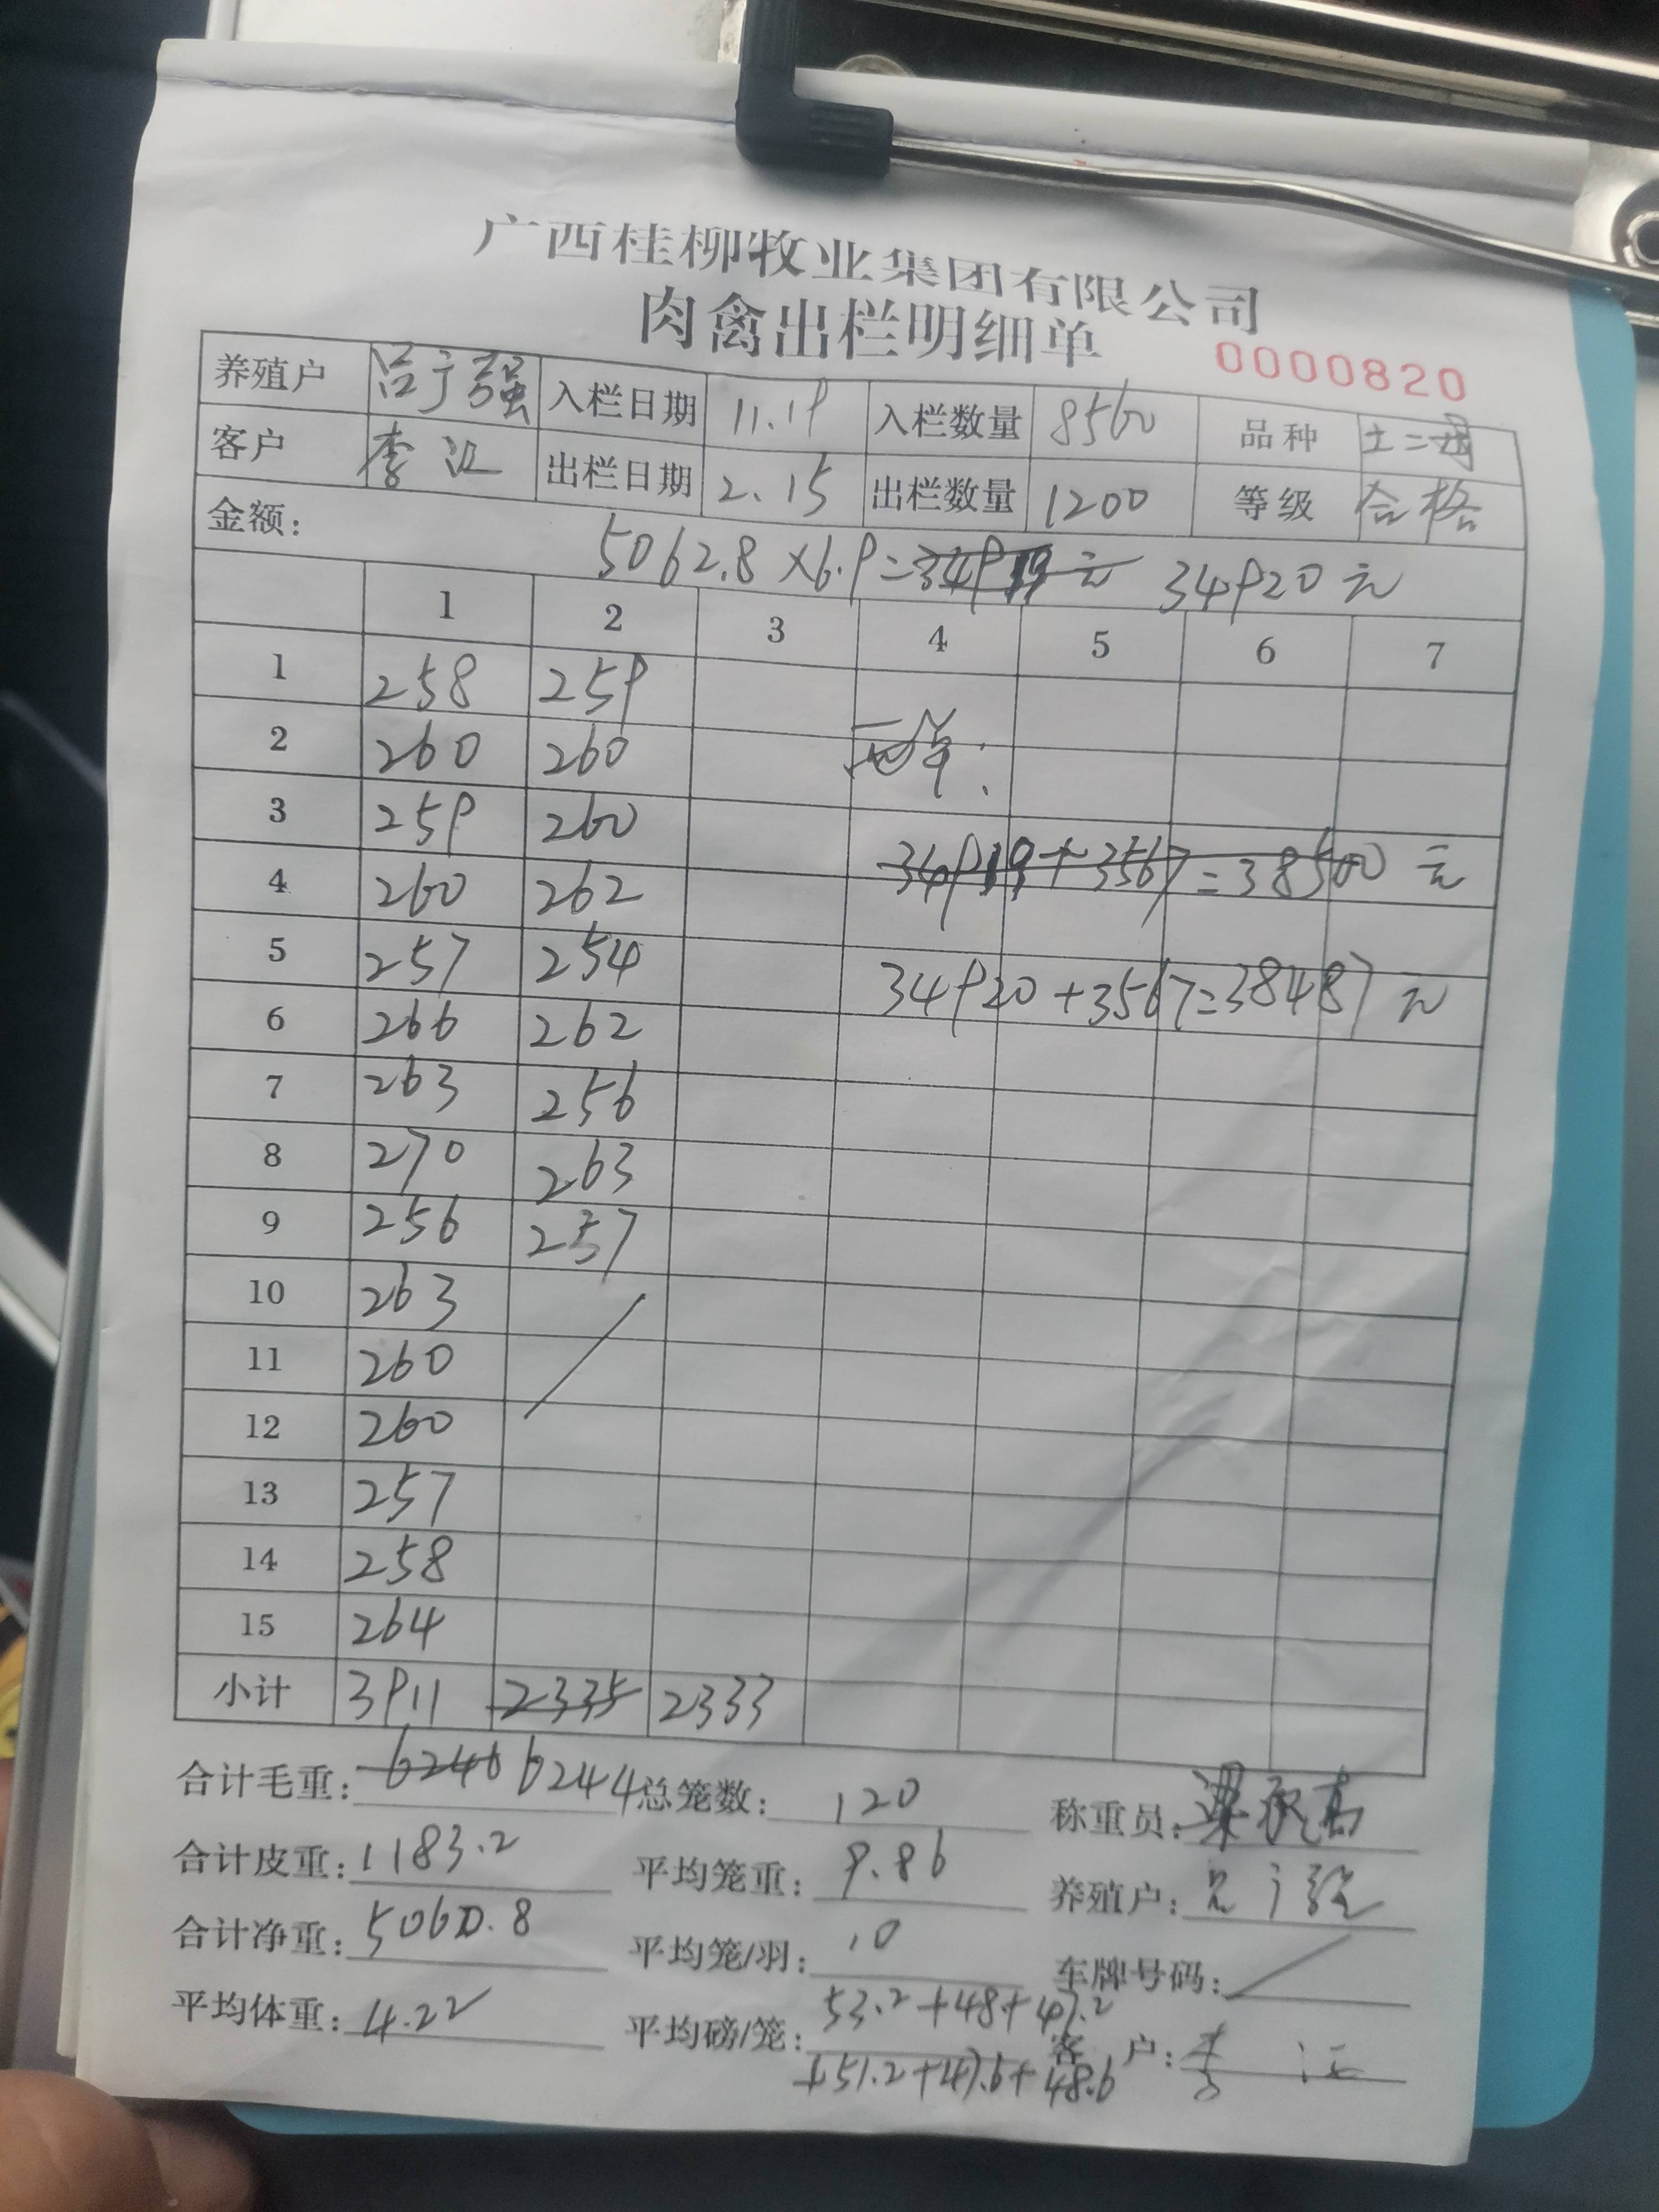 广西桂柳牧业集团有限公司
肉禽出栏明细单
0000820
养殖户 吕于强 入栏日期 11.19 入栏数量 8560 品种 土二
客户 李江 出栏日期 2.15 出栏数量 1200 等级 合格
金额: 5062.8×6.9=34919元 34920元
1 2 3 4 5 6 7
1 258 259
2 260 260 两单:
3 259 260
4 260 262 34919+3567=38500元
5 257 254
6 266 262 34920+3567=38487元
7 263 256
8 270 263
9 256 257
10 263
11 260
12 260
13 257
14 258
15 264
小计 3911 2335 2333
合计毛重: 6246 6244 总笼数: 120 称重员: 梁
合计皮重: 1183.2 平均笼重: 9.86 养殖户:
合计净重: 5060.8 平均笼/羽: 10 车牌号码:
平均体重: 4.22 平均磅/笼: 53.2+48+47.2
+51.2+47.6+48.6 客户: 李江